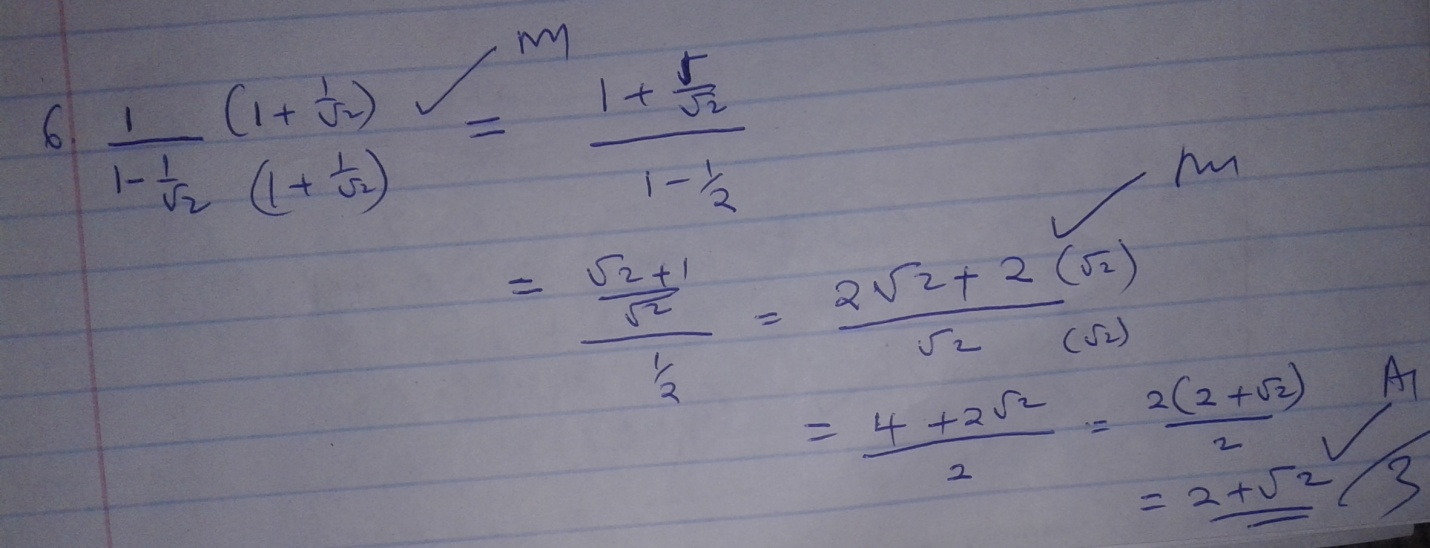 6. 1/(1-1/√2) (1+1/√2)/(1+1/√2) ✓ M1 = (1+1/√2)/(1-1/2)
= ((√2+1)/√2)/(1/2) = (2√2+2)/√2 (√2)/(√2) ✓ M1
= (4+2√2)/2 = 2(2+√2)/2
= 2+√2 ✓ A1 /3